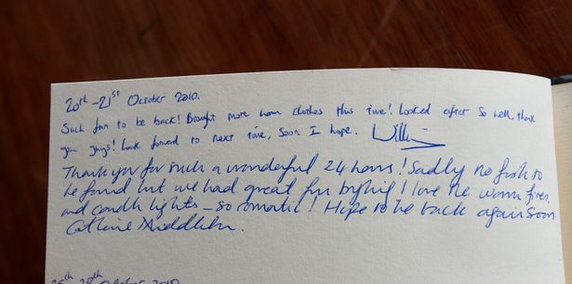 20th - 21st October 2010.
Such fun to be back! Brought more warm clothes this time! Looked after so well, thank
you guys! Look forward to next time, soon I hope. William
Thank you for such a wonderful 24 hours! Sadly no fish to
be found but we had great fun trying! I love the warm fires
and candle lights - so romantic! Hope to be back again soon
Catherine Middleton.
October 2010